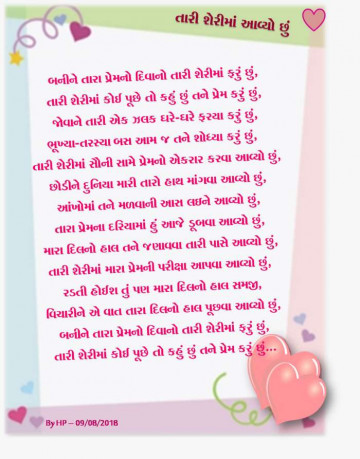 તારી શેરીમાં આવ્યો છું
બનીને તારા પ્રેમનો દિવાનો તારી શેરીમાં ફરું છું,
તારી શેરીમાં કોઈ પૂછે તો કહું છું તને પ્રેમ કરું છું,
જોવાને તારી એક ઝલક ઘરે-ઘરે ફરયા કરું છું,
ભૂખ્યા-તરસ્યા બસ આમ જ તને શોધ્યા કરું છું,
તારી શેરીમાં સૌની સામે પ્રેમનો એકરાર કરવા આવ્યો છું,
છોડીને દુનિયા મારી તારો હાથ માંગવા આવ્યો છું,
આંખોમાં તને મળવાની આસ લઇને આવ્યો છું,
તારા પ્રેમના દરિયામાં હું આજે ડૂબવા આવ્યો છું,
મારા દિલનો હાલ તને જણાવવા તારી પાસે આવ્યો છું,
તારી શેરીમાં મારા પ્રેમની પરીક્ષા આપવા આવ્યો છું,
રડતી હોઈશ તું પણ મારા દિલનો હાલ સમજી,
વિચારીને એ વાત તારા દિલનો હાલ પૂછવા આવ્યો છું,
બનીને તારા પ્રેમનો દિવાનો તારી શેરીમાં ફરું છું,
તારી શેરીમાં કોઈ પૂછે તો કહું છું તને પ્રેમ કરું છું...
By HP – 09/08/2018